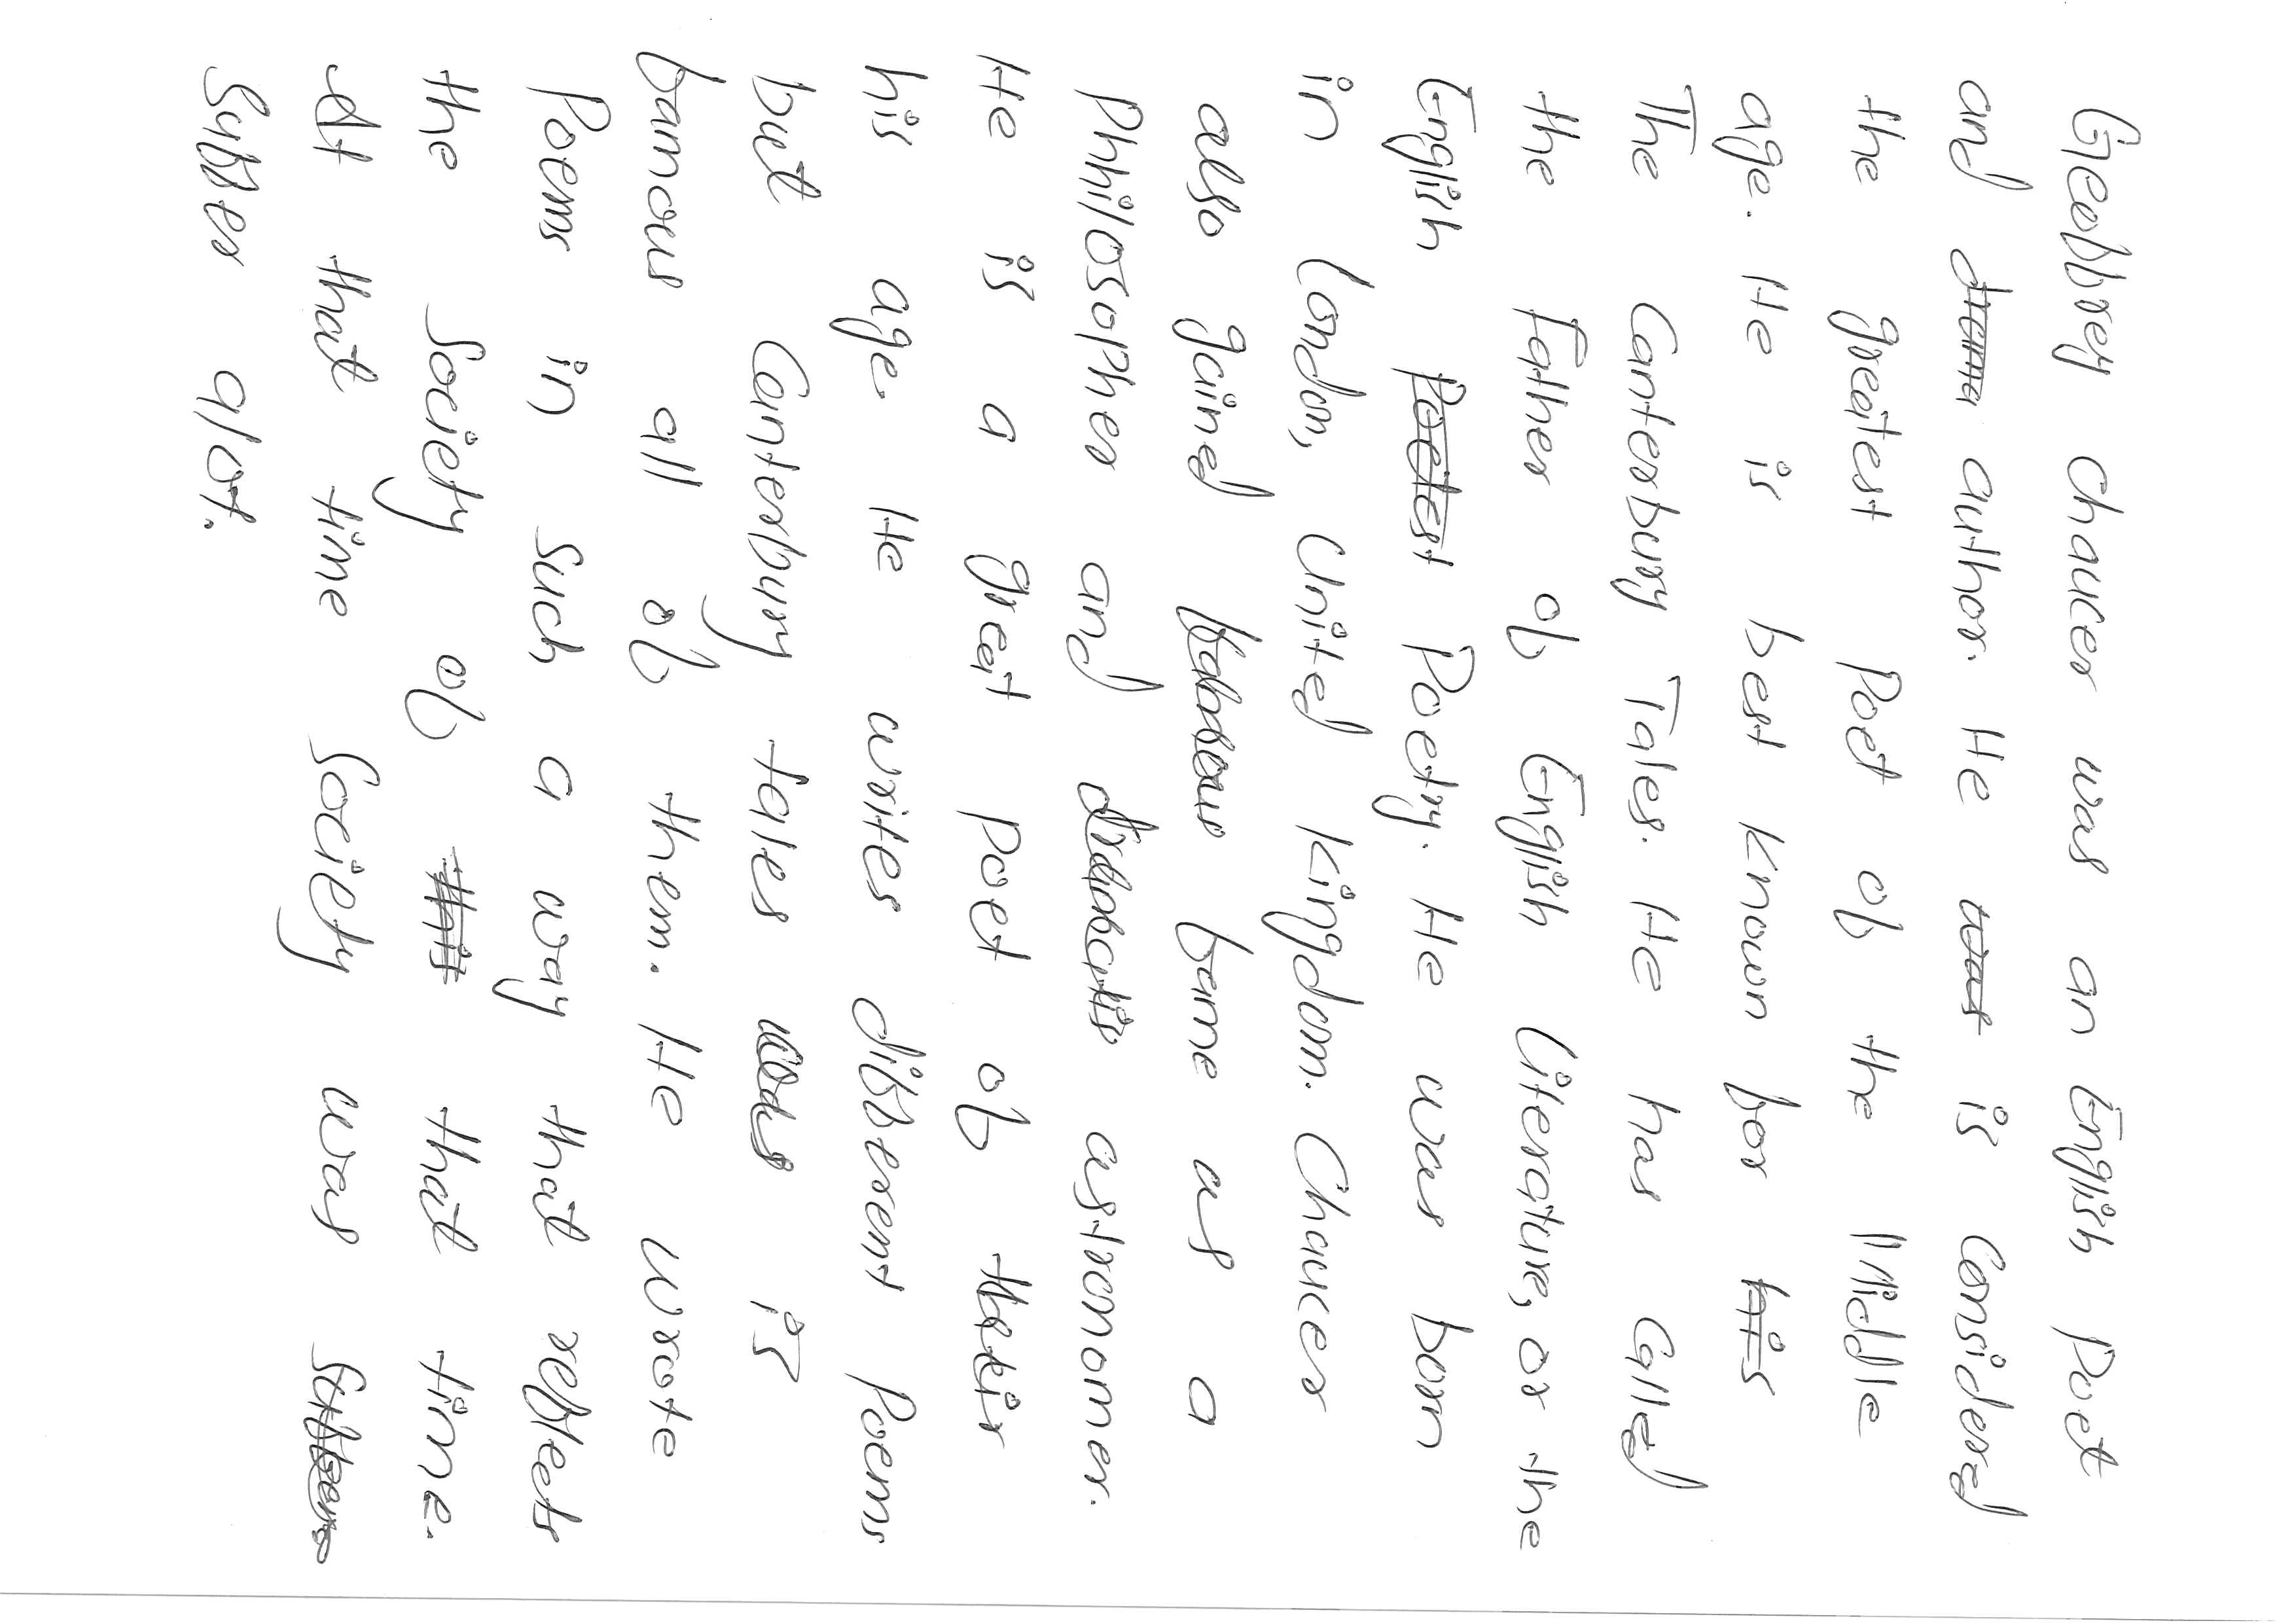 Geoffrey chaucer was an English Poet
and drama author. He was is Considered
the greatest Poet of the Middle
age. He is best Known for his
The Canterbury Tales. He has Called
the Father of English Literature, or the
English Poetest Poetry. He was born
in London, United Kingdom. Chaucer
also gained fame as a
Phhilosopher and astronomer.
He is a great poet of their
his age He writes different Poems
but Canterbury tales was is
famous all of them. He wrote
Poems in Such a way that reflects
the Society of this that time.
At that time Society was
Suffer alot.